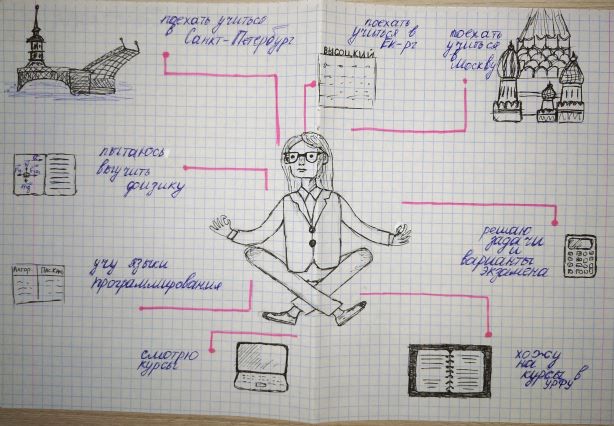 поехать учиться
в Санкт-Петербург
поехать
учиться в
Ек-рг
ВЫСОЦКИЙ
поехать
учиться
в
Москву
пытаюсь
выучить
физику
решаю
задачи
и
варианты
экзамена
учу языки
программирования
смотрю
курсы
хожу
на
курсы в
УРФУ